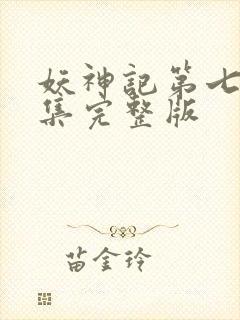 妖神記第七
集完整版
苗金玲